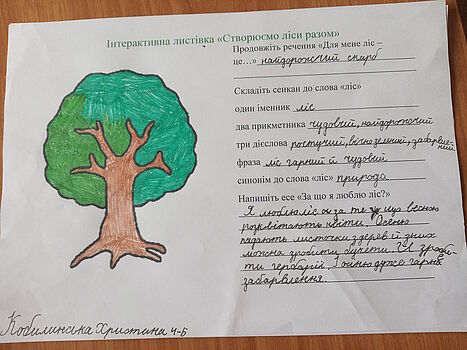 Інтерактивна листівка «Створюємо ліси разом»
Продовжіть речення «Для мене ліс –
це…» найдорожчий скарб
Складіть сенкан до слова «ліс»
один іменник ліс
два прикметника чудовий, найдорожчий
три дієслова ростучий, вічнозелений, забарвлений
фраза ліс гарний й чудовий
синонім до слова «ліс» природа
Напишіть есе «За що я люблю ліс?»
Я люблю ліс за те що весною
розквітають квіти. Осеню
падають листочки з дерев й з них
можна зробити букети. Й зроби-
ти гербарій. Воно дуже гарне
забарвлення.
Кобилинська Христина 4-Б